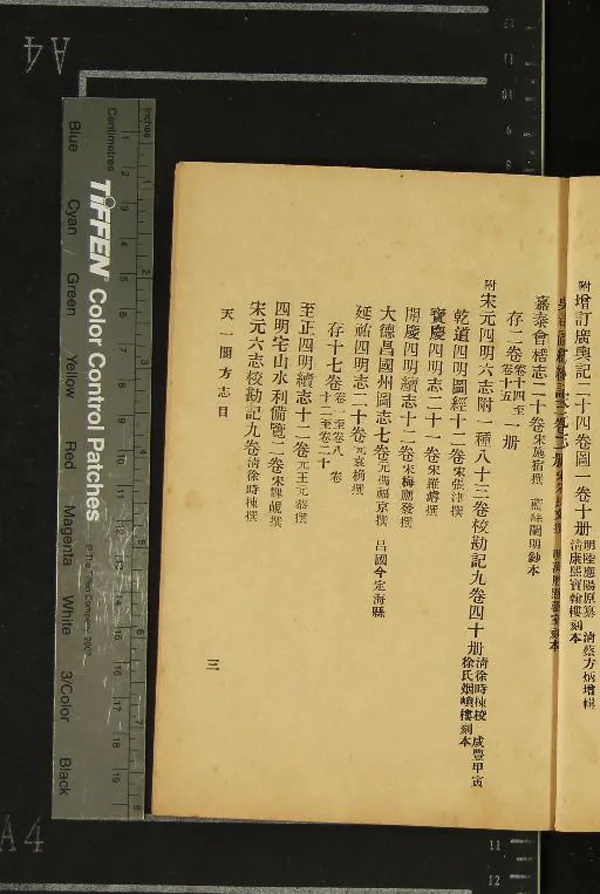 附增訂廣輿記二十四卷圖一卷十册 明陸應陽原纂 清蔡方炳增輯 清康熙寶翰樓刻本
嘉泰會稽志二十卷 宋施宿撰 藍絲闌明鈔本
存二卷 卷十四至卷十五 一册
附宋元四明六志附一種八十三卷校勘記九卷四十册 清徐時棟校 咸豐甲寅徐氏烟嶼樓刻本
乾道四明圖經十二卷 宋張津撰
寶慶四明志二十一卷 宋羅濬撰
開慶四明續志十二卷 宋梅應發撰
大德昌國州圖志七卷 元馮福京撰 昌國今定海縣
延祐四明志二十卷 元袁桷撰
存十七卷 卷一至卷八 卷十二至卷二十
至正四明續志十二卷 元王元恭撰
四明宅山水利備覽二卷 宋魏峴撰
宋元六志校勘記九卷 清徐時棟撰
天一閣方志目
三
Inches
Centimetres
1 2 3 4 5 6 7 8
1 2 3 4 5 6 7 8 9 10 11 12 13 14 15 16 17 18 19
TIFFEN® Color Control Patches
© The Tiffen Company, 2007
Blue
Cyan
Green
Yellow
Red
Magenta
White
3/Color
Black
A4
A4
10
11
12